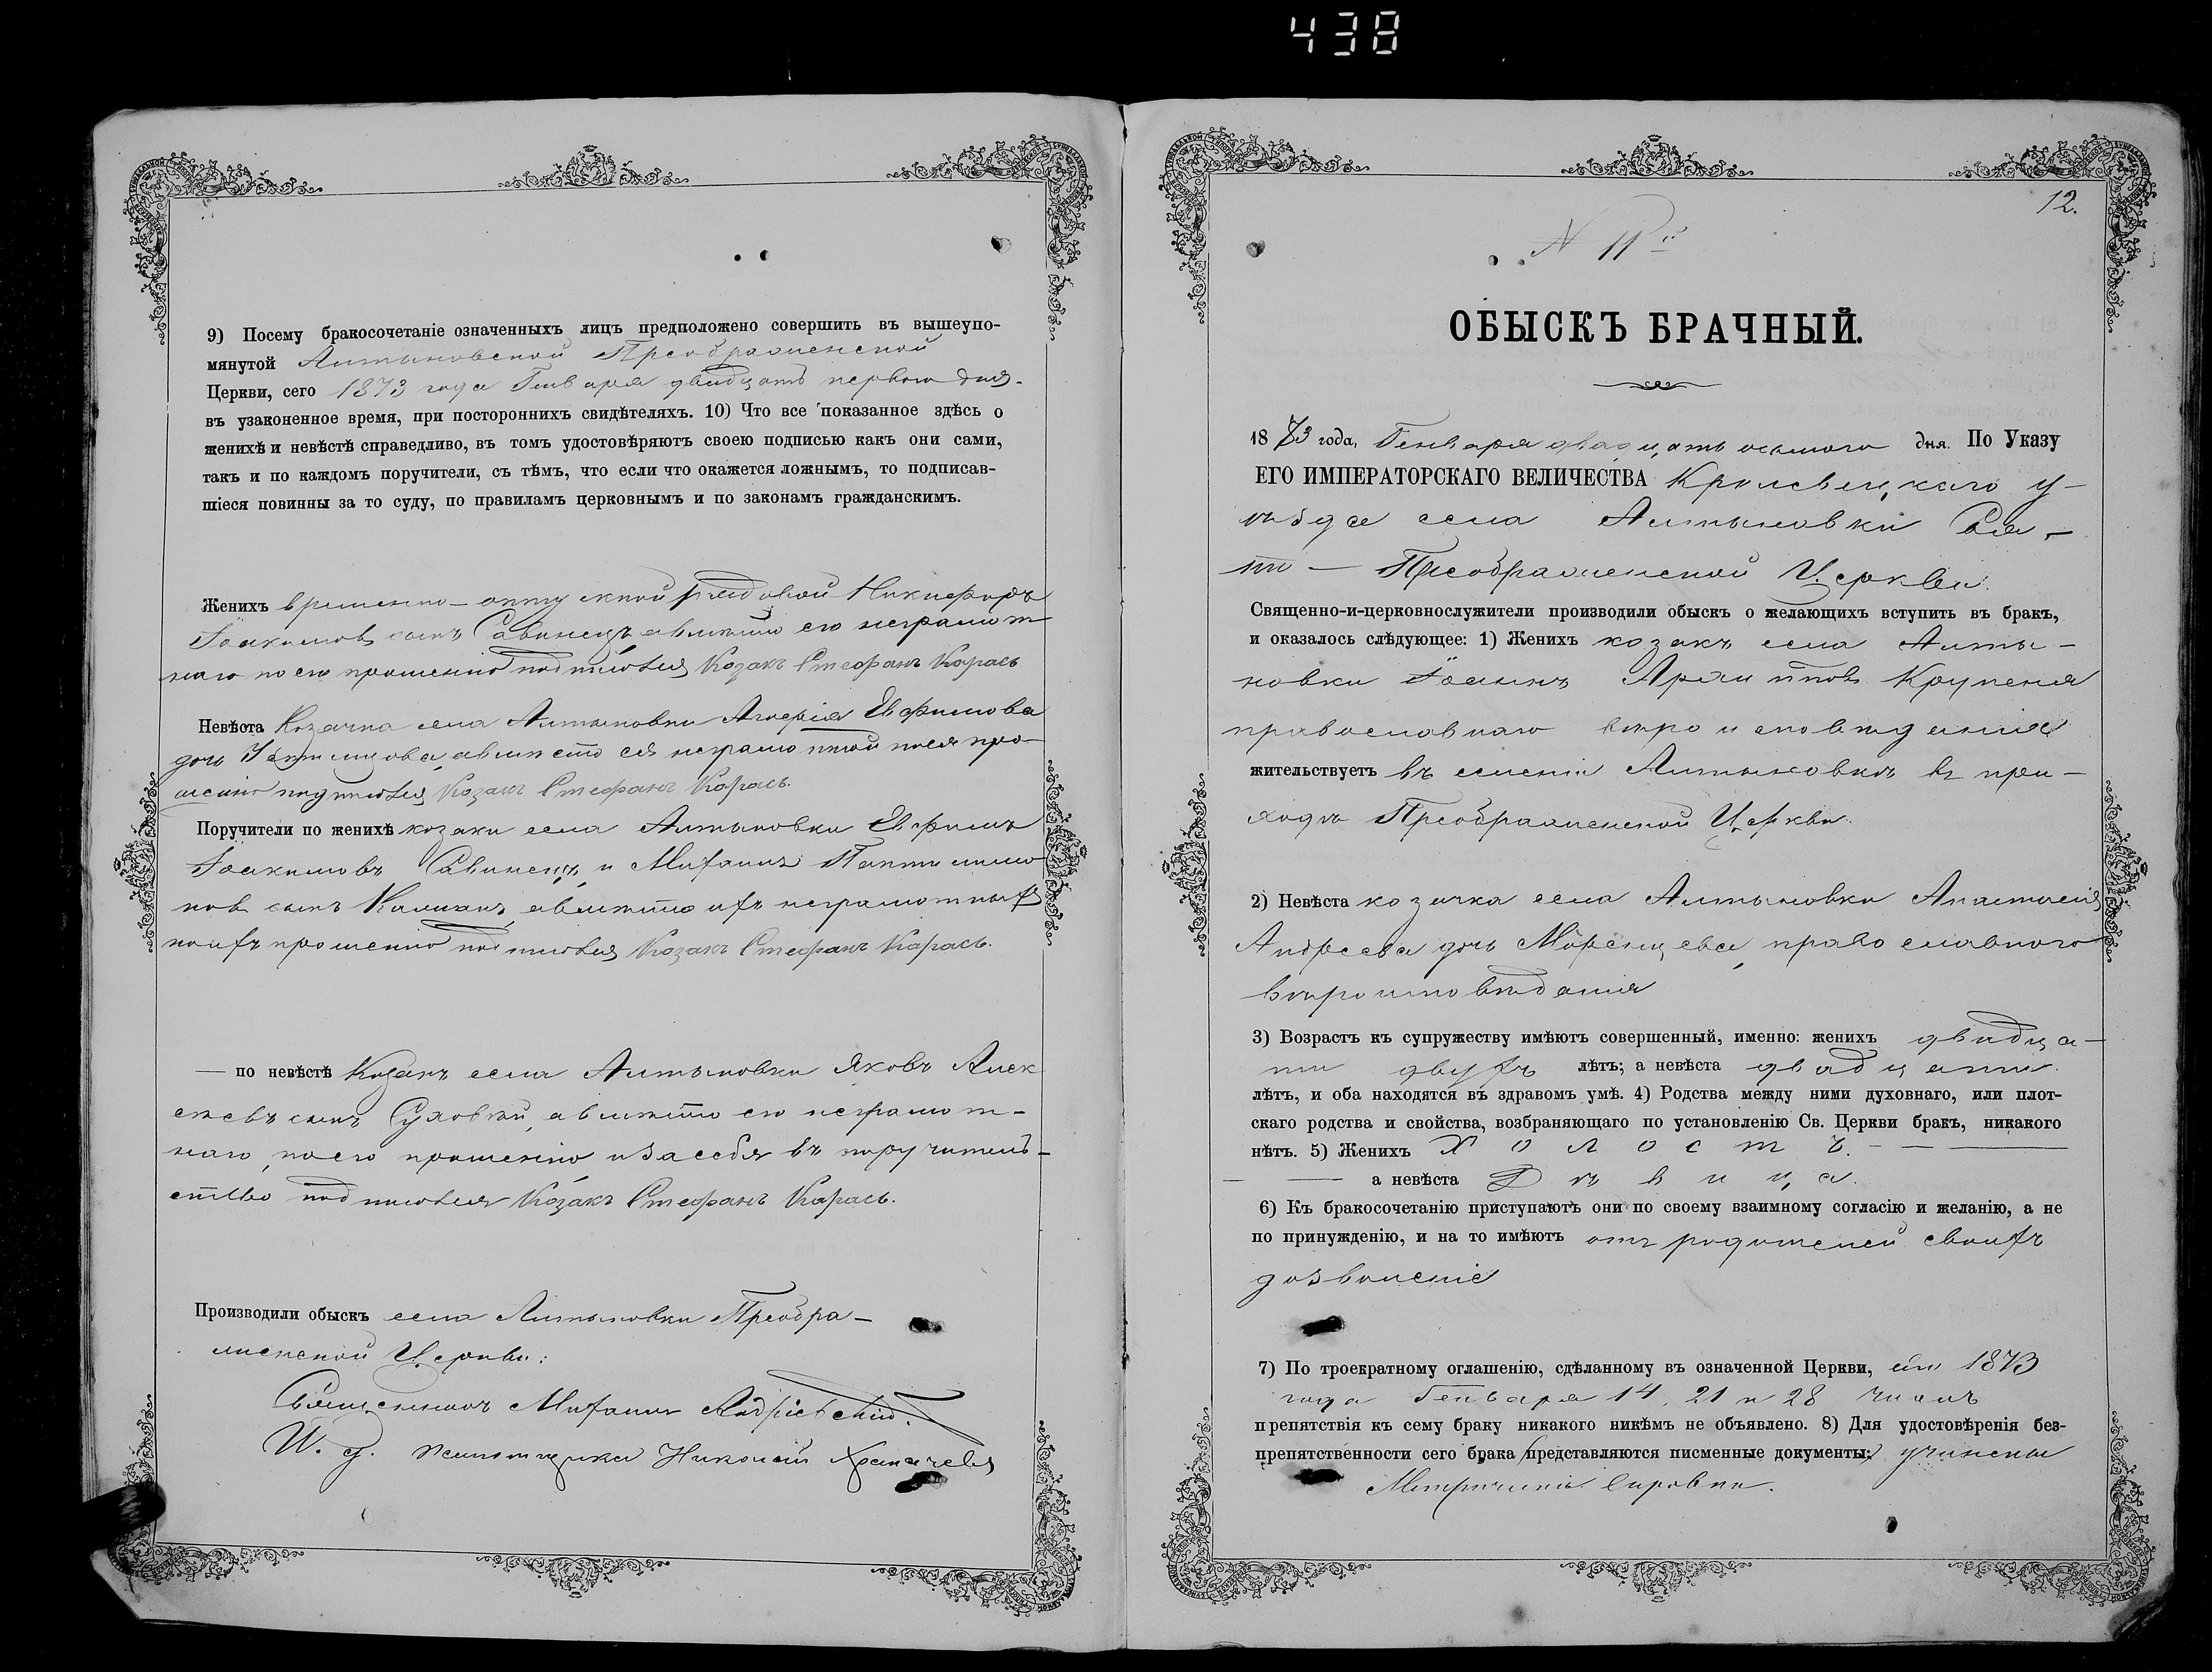 438
9) Посему бракосочетаніе означенныхъ лицъ предположено совершить въ вышеупо-
мянутой Алтыновской Преображенской
Церкви, сего 1873 года Генваря двадцать перваго дня.
въ узаконенное время, при постороннихъ свидѣтеляхъ. 10) Что все показанное здѣсь о
женихѣ и невѣстѣ справедливо, въ томъ удостовѣряютъ своею подписью какъ они сами,
такъ и по каждомъ поручители, съ тѣмъ, что если что окажется ложнымъ, то подписав-
шіеся повинны за то суду, по правиламъ церковнымъ и по законамъ гражданскимъ.
Женихъ временно-отпускной рядовой Никифоръ
Іоакимовъ сынъ Савинецъ, а вмѣсто его неграмот
наго по его прошенію подписался Козакъ Стефанъ Карась
Невѣста Козачка села Алтыновки Евфимова
дочь а вмѣсто ея неграмотной по ея про-
шенію подписался Козакъ Стефанъ Карась.
Поручители по женихѣ козаки села Алтыновки Евфимъ
Іоакимовъ Савинецъ и Михаилъ
новъ сынъ а вмѣсто ихъ неграмотныхъ
по ихъ прошенію подписался Козакъ Стефанъ Карась.
— по невѣстѣ Козакъ села Алтыновки Яковъ Алек
сѣевъ сынъ а вмѣсто его неграмот-
наго, по его прошенію и за себя въ поручитель-
ство подписался Козакъ Стефанъ Карась.
Производили обыскъ села Алтыновки Преобра-
женской Церкви:
Священникъ Михаилъ Андріевскій.
И. д. псаломщика Николай
12.
N 11й
ОБЫСКЪ БРАЧНЫЙ.
1873 года, Генваря двадцать осьмого дня. По Указу
ЕГО ИМПЕРАТОРСКАГО ВЕЛИЧЕСТВА Кролевецкаго у-
ѣзда села Алтыновки Свя-
то — Преображенской Церкви.
Священно-и-церковнослужители производили обыскъ о желающихъ вступить въ бракъ,
и оказалось слѣдующее: 1) Женихъ козакъ села Алты-
новки Іоаннъ Крупеня
православнаго вѣроисповѣданія
жительствуетъ въ селеніи Алтыновкѣ въ при-
ходѣ Преображенской Церкви.
2) Невѣста козачка села Алтыновки Анастасія
Андреева дочь православного
вѣроисповѣданія
3) Возрастъ къ супружеству имѣютъ совершенный, именно: женихъ двадца-
ти двухъ лѣтъ; а невѣста двадцати.
лѣтъ, и оба находятся въ здравомъ умѣ. 4) Родства между ними духовнаго, или плот-
скаго родства и свойства, возбраняющаго по установленію Св. Церкви бракъ, никакого
нѣтъ. 5) Женихъ Холостъ. —
— а невѣста Дѣвица.
6) Къ бракосочетанію приступаютъ они по своему взаимному согласію и желанію, а не
по принужденію, и на то имѣютъ отъ родителей своихъ
дозволеніе
7) По троекратному оглашенію, сдѣланному въ означенной Церкви, сего 1873
года Генваря 14, 21 и 28 числъ
препятствія къ сему браку никакого никѣмъ не объявлено. 8) Для удостовѣренія без-
препятственности сего брака (представляются писменные документы:) учинены
Метрическіе справки.